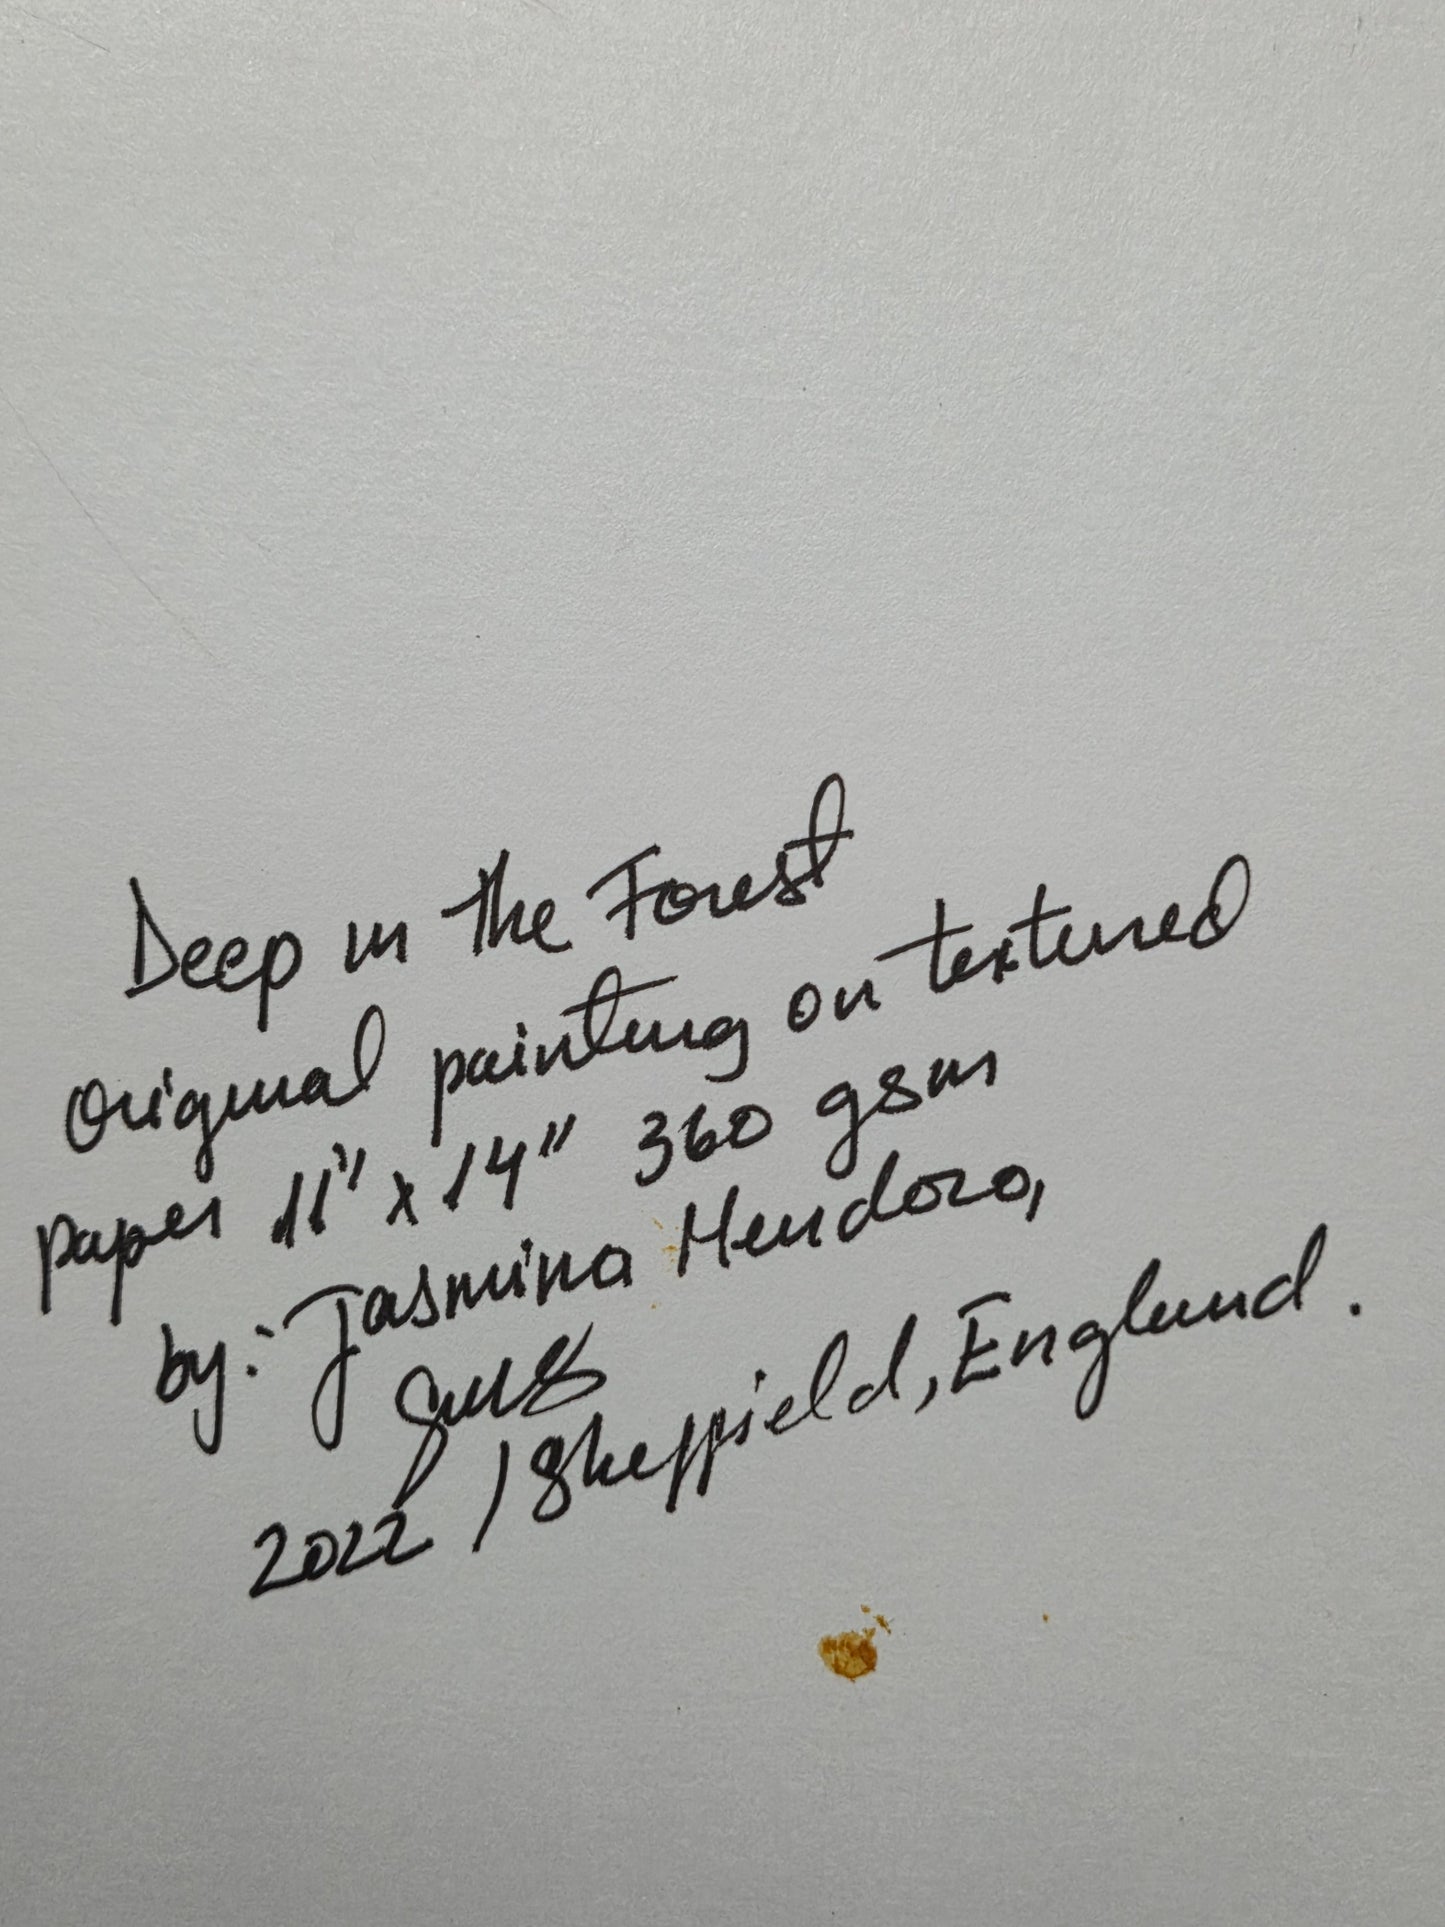 Deep in the Forest
Original painting on textured
paper 11" x 14" 360 gsm
by: Jasmina Mendoro,
2022 / Sheffield, England.